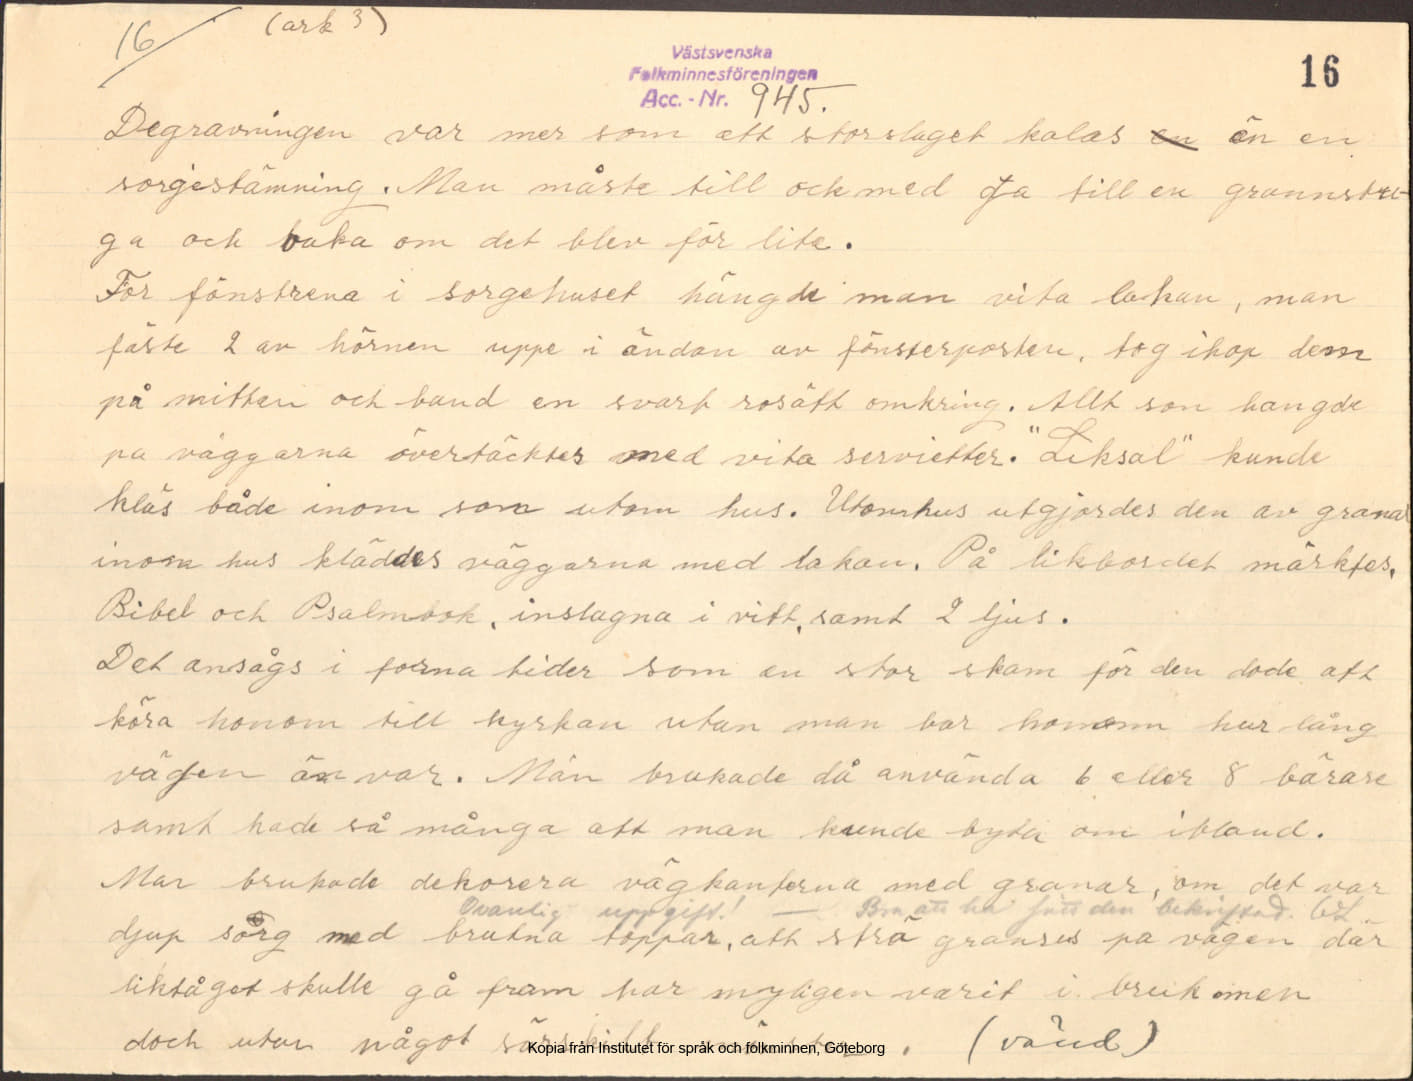 16 (ark 3)
Västsvenska
Folkminnesföreningen
Acc.-Nr. 945.
16
Begravningen var mer som ett storslaget kalas en än en
sorgestämning. Man måste till och med ga till en grannstu-
ga och baka om det blev för lite.
For fönstrena i sorgehuset hängde man vita lakan, man
fäste 2 av hörnen uppe i ändan av fönsterposten, tog ihop dem
på mitten och band en svart rosätt omkring. Allt son hangde
pa väggarna övertäcktes med vita servietter. "Liksal" kunde
kläs både inom som utom hus. Utomhus utgjordes den av granar
inom hus kläddes väggarna med lakan. På likbordet märktes,
Bibel och Psalmbok, inslagna i vitt, samt 2 ljus.
Det ansågs i forna tider som en stor skam för den dode att
köra honom till kyrkan utan man bar honom hur lång
vägen än var. Män brukade då använda 6 eller 8 bärare
samt hade så många att man kunde byta om ibland.
Man brukade dekorera vägkanterna med granar, om det var
Ovanlig uppgift! — Bra att ha fått den bekräftad.
djup sorg med brutna toppar, att strö granris pa vägen där
liktåget skulle gå fram har myligen varit i bruk men
doch utan något särskilt mönster. (vänd)
Kopia från Institutet för språk och folkminnen, Göteborg